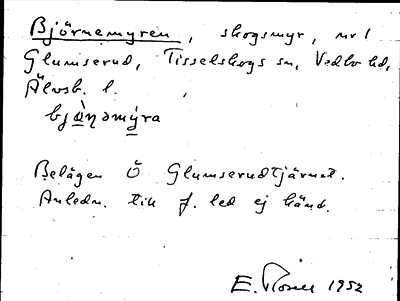 Björnemyren, skogsmyr, nr 1
Glumserud, Tisselskogs sn, Vedbo hd,
Älvsb. l.
bjò̤ṇəmy̤ra
Belägen Ö Glumserudtjärnet.
Anledn. till f. led ej känd.
E. Rosell 1952